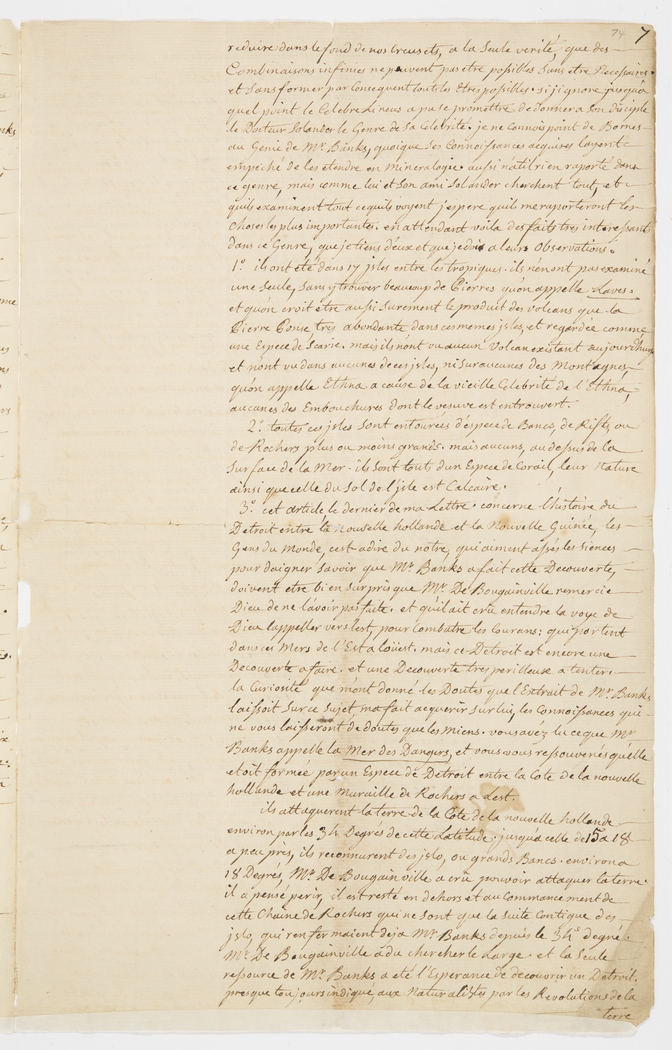 74 7
reduire dans le fond de nos creusets, a la Seule verité, que des
Combinaisons infinies ne peuvent pas etre possibles Sans etre Necessaires.
et Sans former par Consequent tout les Etres possibles. si j'ignore jusqu'a
quel point le Celebre Lineus a pu se promettre de donner a Son disciple
le Docteur Solandor le Genre de Sa Celebrité. je ne Connois point de Bornes
au Genie de Mr. Banks, quoique Ses Connoissances acquises l'ayent
empeché de les etendre en Mineralogie. aussi n'at'il rien raporté dans
ce genre, mais comme lui et Son ami Solandor cherchent tout, et
qu'ils examinent tout ce qu'ils voyent j'espere qu'ils me raporteront les
Choses les plus importantes. en attendant voila des faits tres interessant
dans ce Genre, que je tiens d'eux et que je dois a leurs Observations.
1.° ils ont été dans 17 jsles entre les tropiques. ils n'en ont pas examiné
une Seule, Sans y trouver beaucoup de Pierres qu'on appelle Laves.
et qu'on croit etre aussi Surement le produit des Volcans que la
Pierre Ponse tres abondante dans ces memes jsles et regardée comme
une Espece de Scarie. mais ils n'ont vu aucun Volcan existant aujourdhuy
et n'ont vu dans aucunes de ces jsles, ni Sur aucunes des Montagnes
qu'on appelle Ethna a cause de la vieille Celebrité de l'Ethna,
aucunes des Embouchures dont le vesuve est entrouvert.
2.° toutes ces jsles Sont entourées d'espece de Bancs, de Rifts, ou
de Rochers plus ou moins grands. mais aucuns, au dessus de la
Surface de la Mer. ils sont tout d'un Espece de Corail, leur Nature
ainsi que celle du Sol de l'jsle est Calcaire.
3.° cet article le dernier de ma Lettre. concerne l'histoire du
Detroit entre la Nouvelle hollande et la Nouvelle Guinée, les
Gens du Monde, c'est a dire du notre, qui aiment assés les Siences
pour daigner Savoir que Mr. Banks a fait cette Decouverte,
doivent etre bien Surpris que Mr. De Bougainville remercie
Dieu de ne l'avoir pas faite. et qu'il ait crû entendre la voye de
Dieu l'appeller vers l'est, pour combatre les Courans: qui portent
dans ces Mers de l'Est a l'oüest. mais ce Detroit est encore une
Decouverte a faire. et une Decouverte tres perilleuse a tenter.
la Curiosité que m'ont donné les Doutes que l'Extrait de Mr. Banks
laissoit Sur ce Sujet, m'a fait acquerir Sur lui, les Connoissances qui
ne vous laisseront de doutes que les miens. vous avez lu ce que Mr.
Banks appelle la Mer des Dangers, et vous vous ressouvenés qu'elle
etoit formée par un Espece de Detroit entre la Cote de la nouvelle
hollande et une Muraille de Rochers a L'est.
ils attaquerent la terre de la Cote de la nouvelle hollande
environ par les 34 Degrés de cette Latitude. jusqu'a celle de 15 a 18
a peu près, ils reconnurent des jsls, ou grands Bancs. environ a
18 Degrés, Mr. De Bougainville a crû pouvoir attaquer la terre.
il a pensé perir, il est resté en dehors et au Commancement de
cette Chaine de Rochers qui ne Sont que la Suite Contigue des
jsls, qui renfermaient deja Mr. Banks depuis le 34e. degré.
Mr. De Bougainville a du chercher le Large. et la Seule
ressource de Mr. Banks a été l'Esperance de decouvrir un Detroit,
presque toujours indiqué, aux Naturalistes par les Revolutions de la
terre